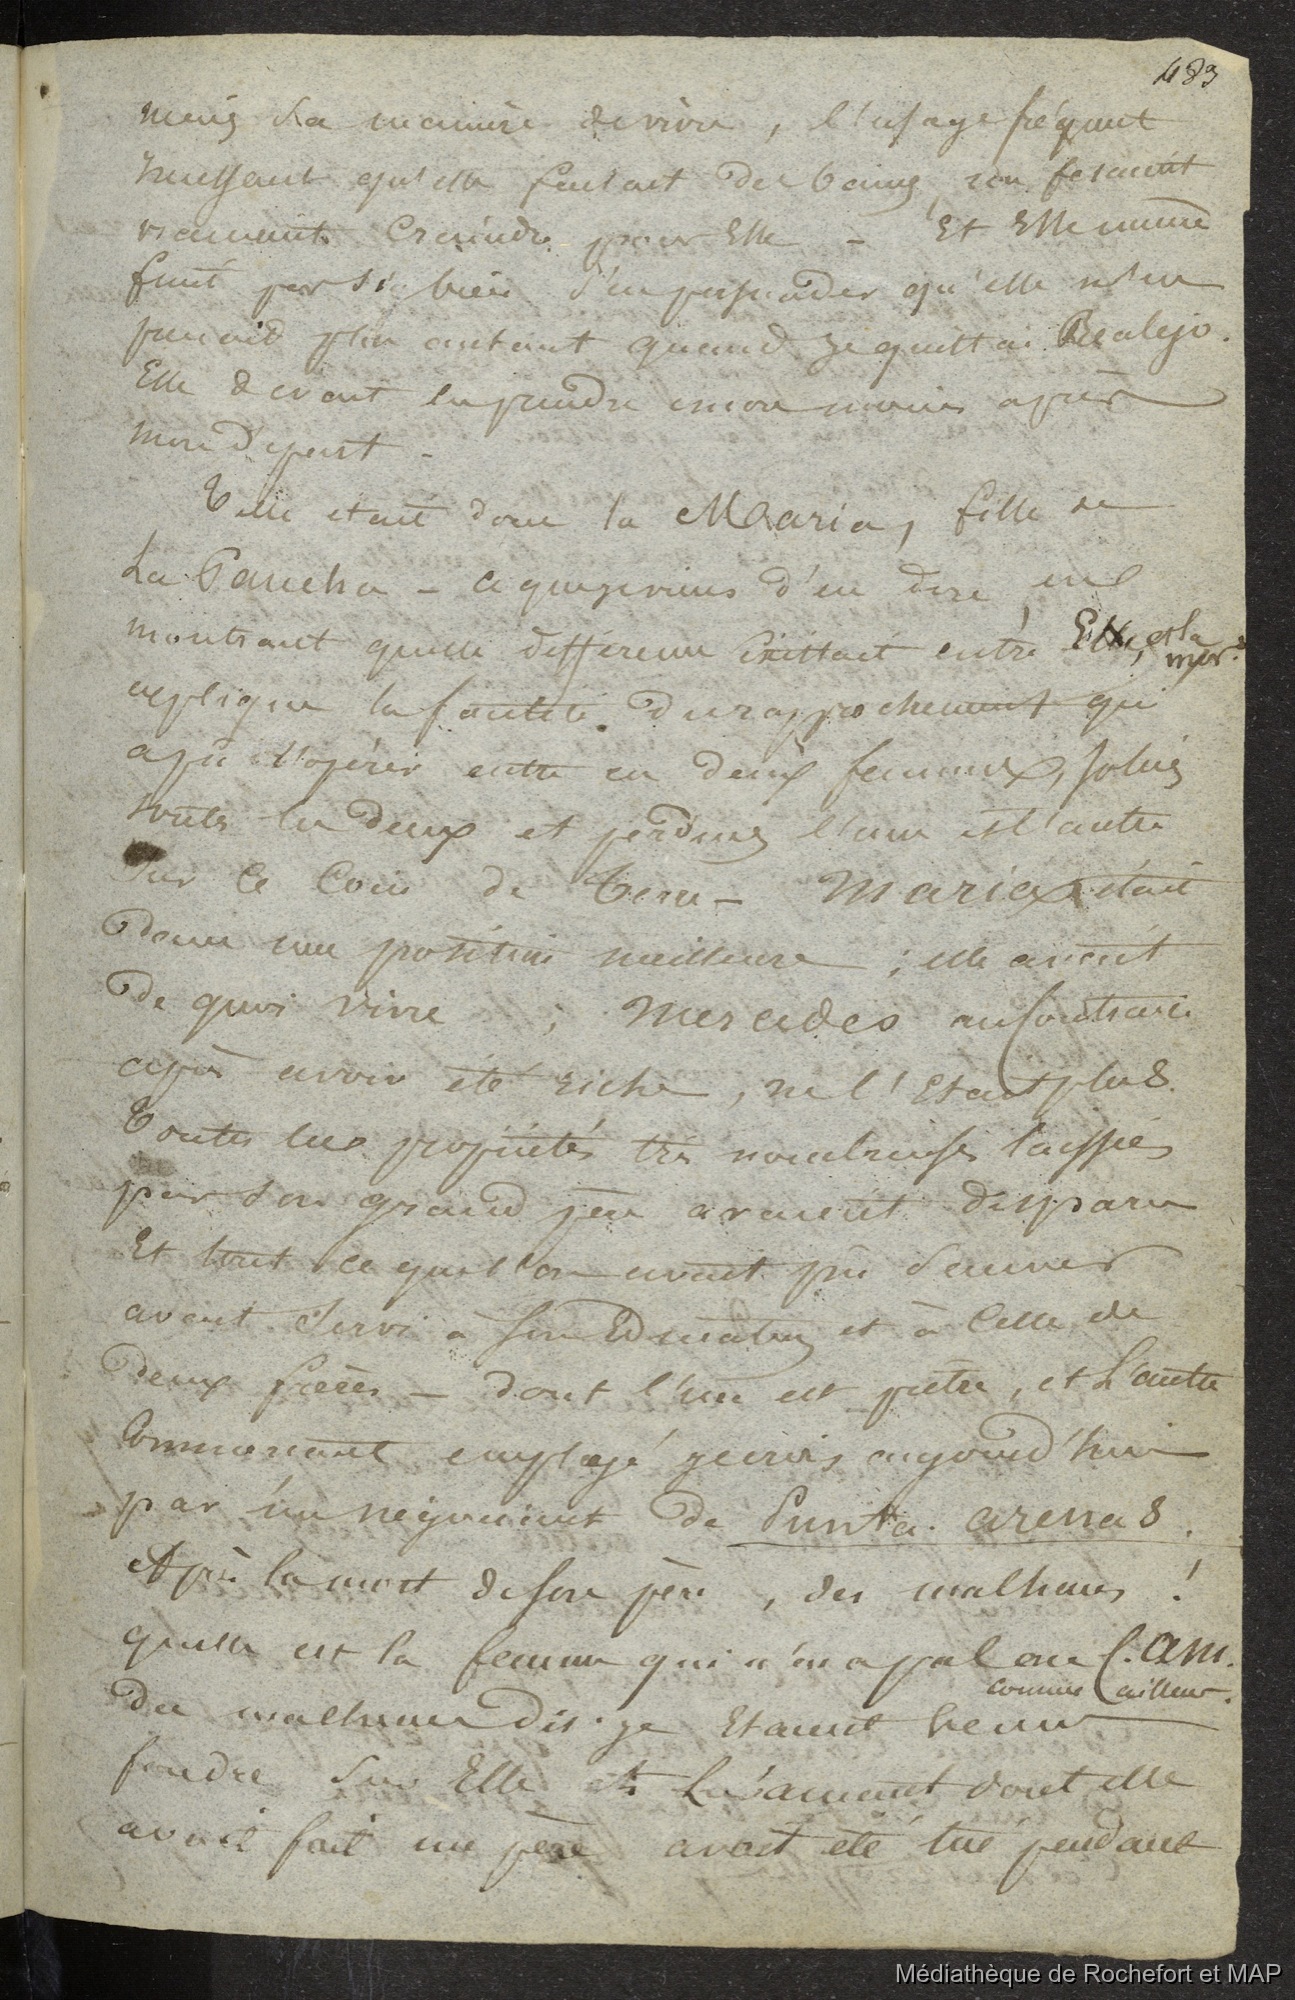 483
mais sa manière de vivre, l'usage fréquent
qu'elle faisait des bains, en fesaient
vraiment craindre pour Elle - Et Elle même
finit par si bien s'en persuader qu'elle n'en
prenait plus autant quand je quittai Realejo.
Elle devait en prendre encore moins après
mon départ -
Telle etait donc la Maria, fille de
La Pancha - ce que je viens d'en dire, en
montrant quelle différence existait entre Elle, et la
mer.
explique la facilité du rapprochement qui
a pu s'opérer entre ces deux femmes, jolies
toutes les deux et perdues l'une et l'autre
sur ce coin de terre - Maria était
dans une position meilleure ; elle avait
de quoi vivre ; Mercedes au contraire
après avoir été riche, ne l'etait plus.
Toutes les propriétés très nombreuses laissées
par son grand père avaient disparu
Et tout ce que l'on avait pu sauver
avait servi à son Education et à celle de
deux frères - dont l'un est prêtre, et l'autre
commerçant employé je crois aujourd'hui
par un négociant de Punta arenas.
Après la mort de son père, des malheurs !
quelle est la femme qui n'en a pas l. am.
comme ailleur.
des malheurs dis-je etaient venus
fondre sur Elle et L'amant dont elle
avait fait un père avait été tué pendant
Médiathèque de Rochefort et MAP